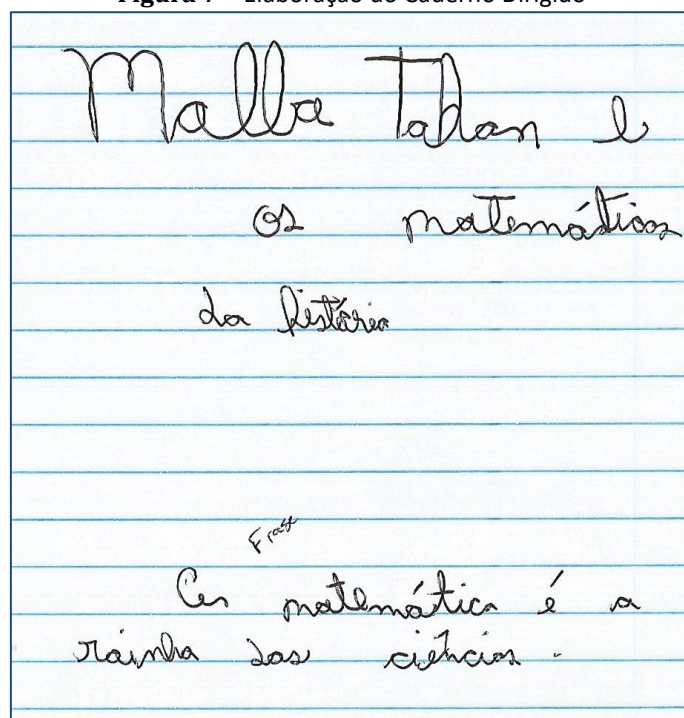 Figura 7 – Elaboração do Caderno Dirigido
Malba Tahan e
os matemáticos
da história
Frase
A matemática é a
rainha das ciências.